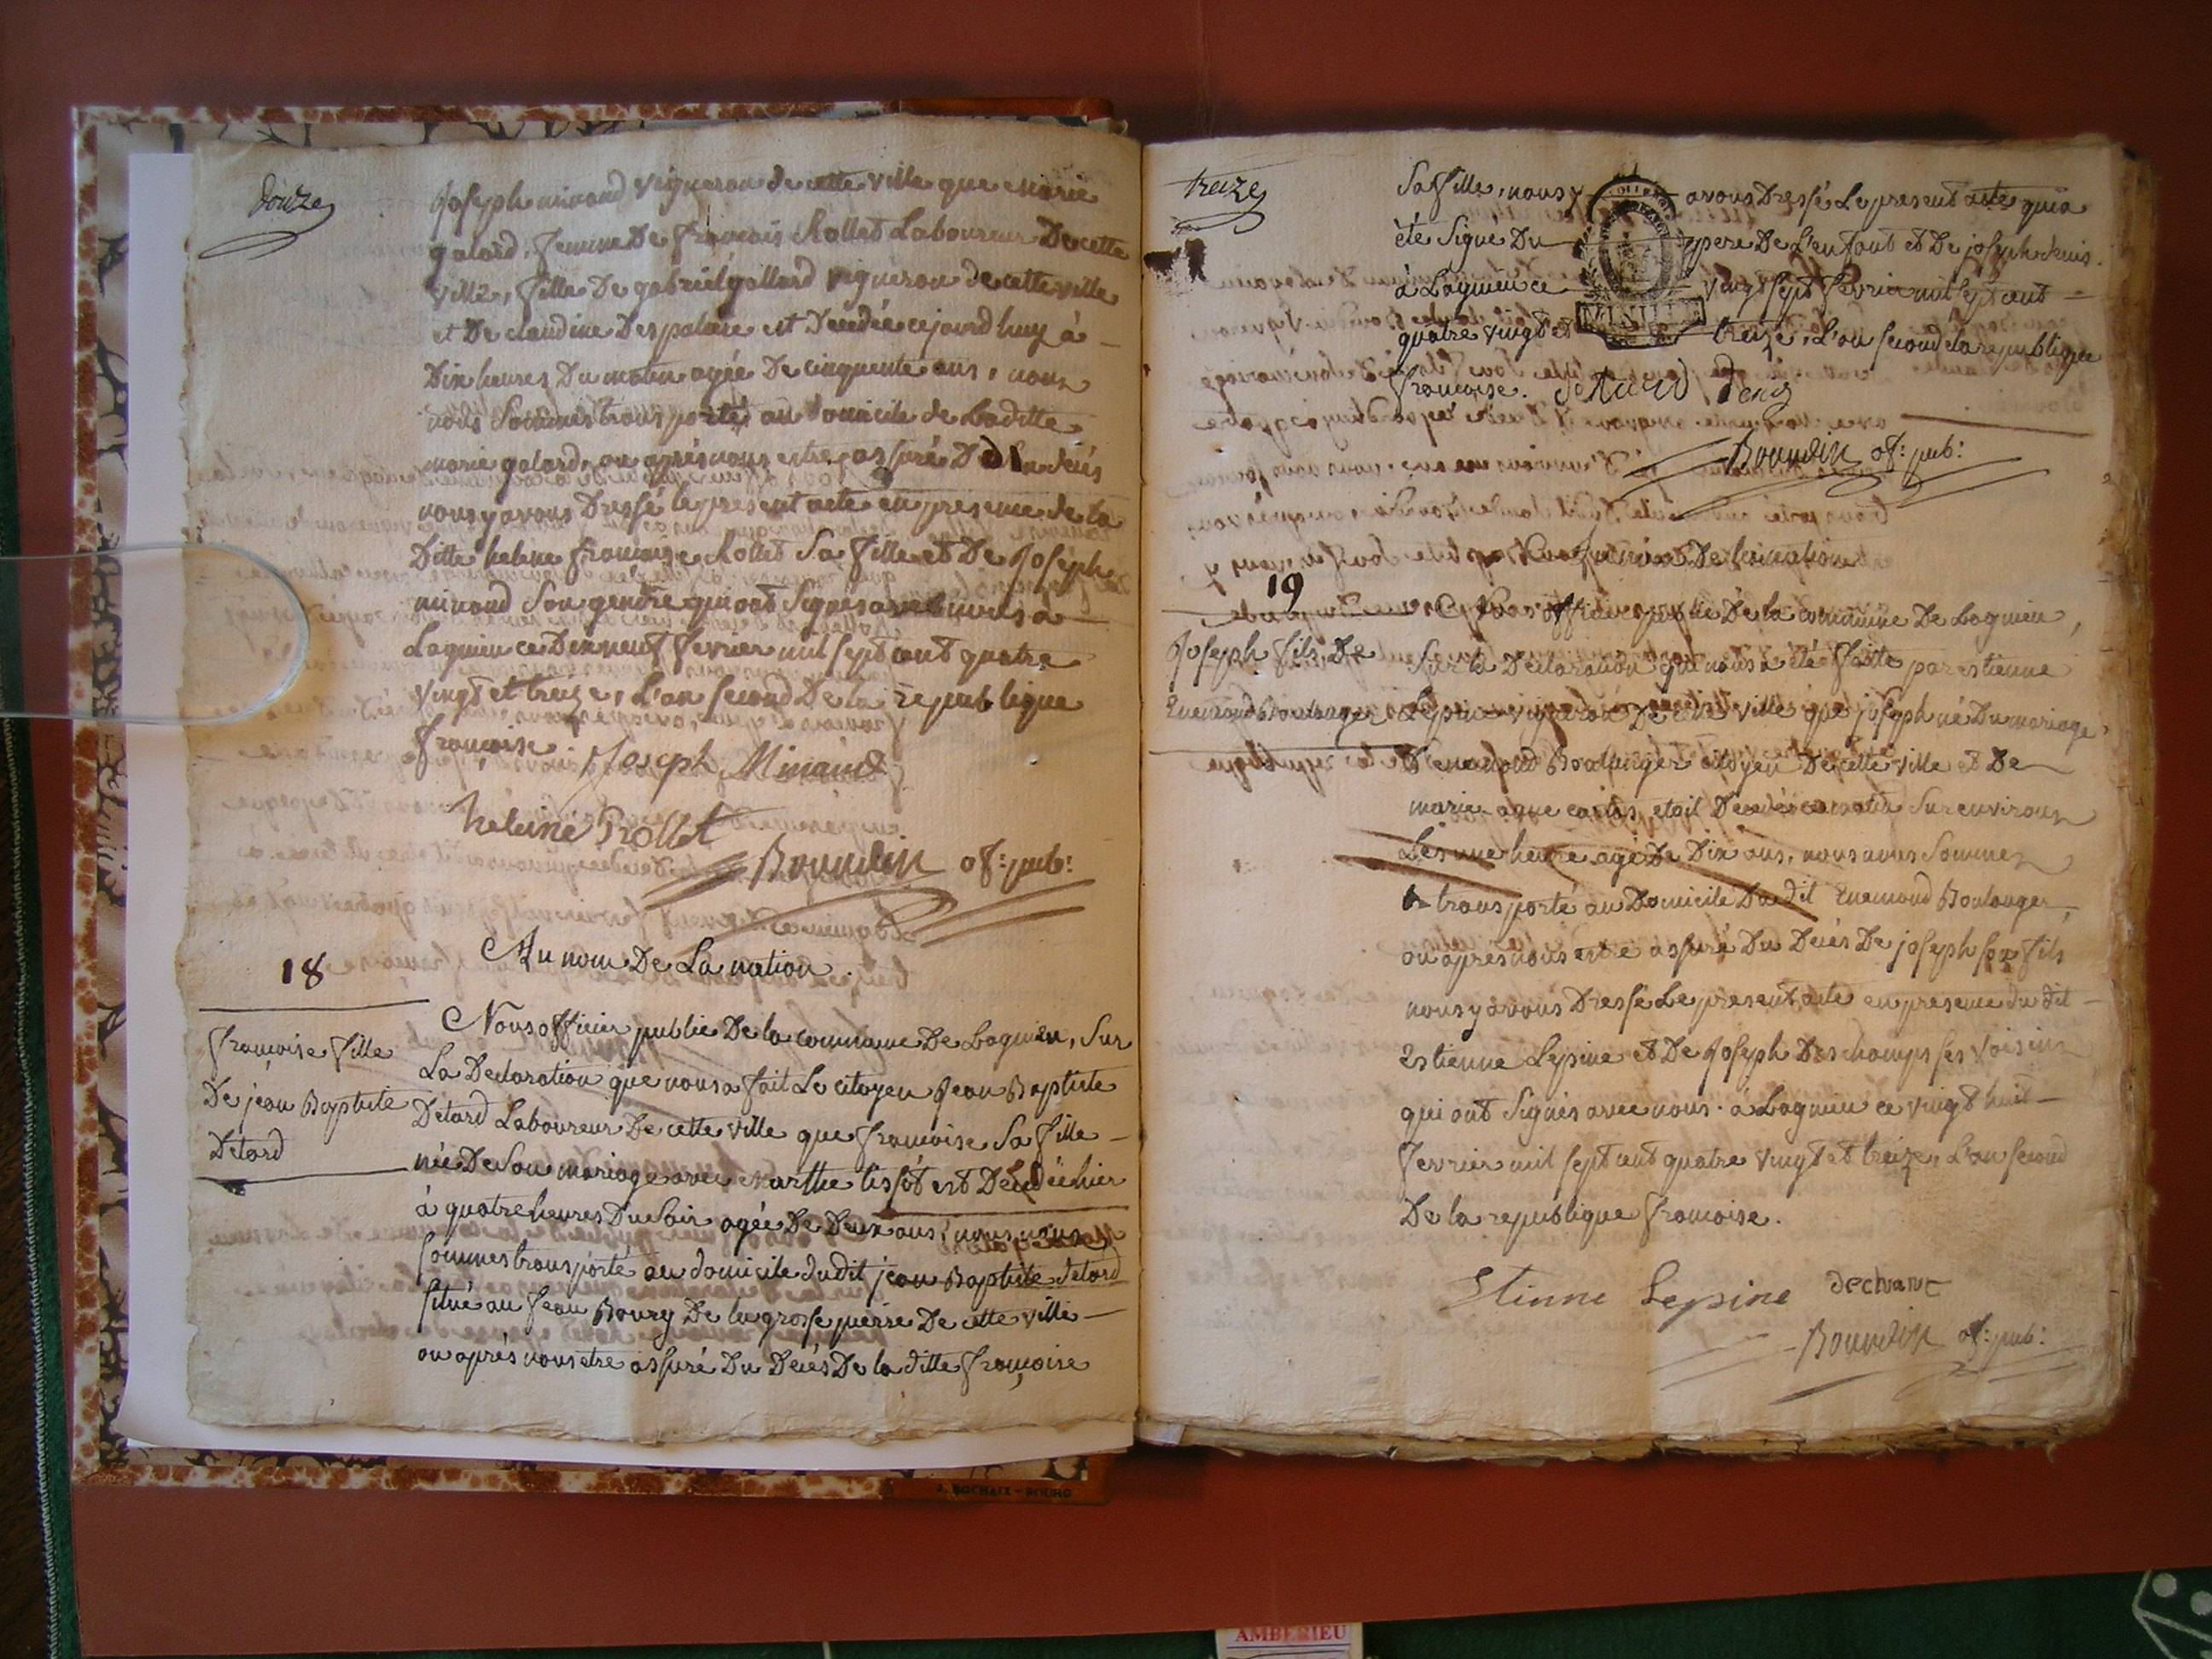 douze
Joseph minand vigneron de cette ville que marie
galard, femme De françois Rollet Laboureur De cette
ville, fille De gabriel gallard vigneron de cette ville
et De claudine Despalare est Décédée cejourdhuy à
Dix heures Du matin agée De cinquente ans, nous
nous sommes transporté au domicile de Laditte
marie galard, ou aprés nous estre assuré D son deués
nous y avons Dressé le present acte en presence de la
Ditte helene françoise Rollet Sa fille et De Joseph
minand Son gendre qui ont Signés avec nous a
Lagnieu ce Dixneuf fevrier mil sept cent quatre
vingt et treize, L'an second De la republique
françoise.
Joseph Minand
heleine Rollet
Bourdin of: pub:
18
Au nom De La nation.
françoise fille
De jean Baptiste
Detard
Nous officier public De la commune De Lagnieu, Sur
La Declaration que nous a fait Le citoyen Jean Baptiste
Detard Laboureur De cette ville que françoise Sa fille
née De Son mariage avec marthe tissot est Decedée hier
à quatre heures Du Soir agée De Deux ans, nous nous
sommes transporté au domicile dudit jean Baptiste detard
situé au feau Bourg De la grosse pierre De cette ville
ou aprés nous etre assuré Du Decés De la ditte françoise
J. ROCHAIX - BOURG
treize
Sa fille, nous y avons Dressé Le present acte qui a
été Signé Du pere De L'enfant et De joseph denis.
à Lagnieu ce vingt sept fevrier mil sept cent
quatre vingt et treize, L'an second de la republique
françoise. detard Denis
Bourdin of: pub:
Au nom De la nation
19
Joseph fils De
Enemond Boulanger
Nous officier public De la commune De Lagnieu,
Sur la Declaration qui nous a été faitte par estienne
Lepine vigneron De cette ville que joseph né Du mariage
D'enemond Boulanger citoyen De cette ville et De
marie anne cartas, etoit Decedé ce matin Sur environ
Les une heure agé De Dix ans, nous nous Sommes
transporté au Domicile Dudit Enemond Boulanger,
ou apres nous estre assuré Du Decés De joseph son fils
nous y avons Dressé Le present acte en presence du dit
Estienne Lepine et De Joseph Deschamps ses voisins
qui ont Signés avec nous. à Lagnieu ce vingt huit
fevrier mil sept cent quatre vingt et treize, L'an second
De la republique françoise.
Stinne Lepine dechant
Bourdin of: pub:
AMBERIEU